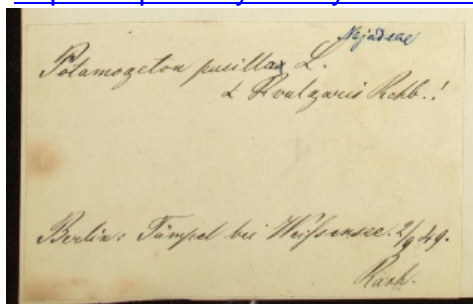 Najadeae
Potamogeton pusillus L.
α vulgaris Rchb.!
Berlin: Tümpel bei Weißensee. 2/9 49.